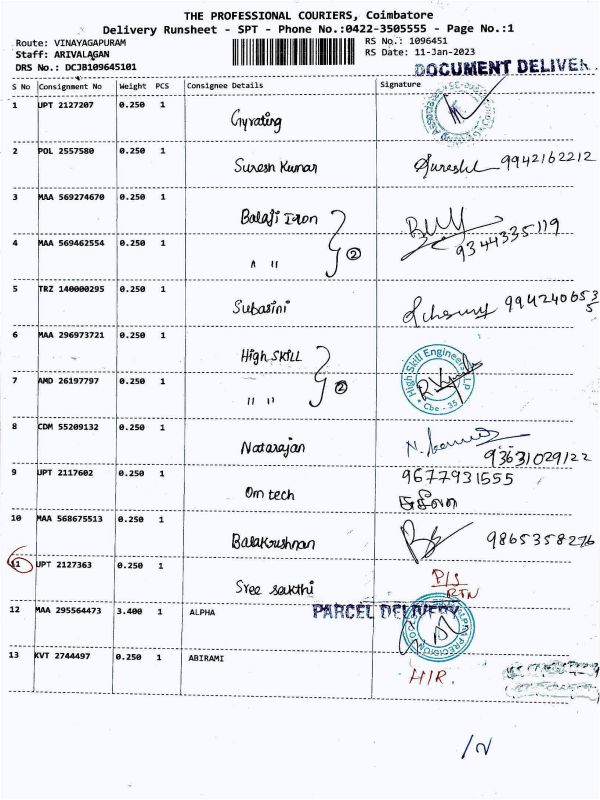 THE PROFESSIONAL COURIERS, Coimbatore
Delivery Runsheet - SPT - Phone No.:0422-3505555 - Page No.:1
Route: VINAYAGAPURAM
RS No.: 1096451
Staff: ARIVALAGAN
RS Date: 11-Jan-2023
DRS No.: DCJB109645101
DOCUMENT DELIVER
S No Consignment No Weight PCS Consignee Details Signature
1 UPT 2127207 0.250 1
Gyrating
2 POL 2557580 0.250 1
Suresh Kumar 9942162212
3 MAA 569274670 0.250 1
Balaji Iron
9344335119
4 MAA 569462554 0.250 1
" " 2
5 TRZ 140000295 0.250 1
Subasini 9942406535
6 MAA 296973721 0.250 1
High SKILL
High Skill Engineers LLP
7 AMD 26197797 0.250 1
" " 2
* Cbe - 35 *
8 CDM 55209132 0.250 1
Natarajan
93631029122
9 UPT 2117602 0.250 1
9677931555
Om tech சுசீலா
10 MAA 568675513 0.250 1
Balakrishnan 9865358276
11 UPT 2127363 0.250 1
P/S
RTN
Sree sakthi
12 MAA 295564473 3.400 1 ALPHA
PARCEL DELIVERY
ALPHA PRECISION
13 KVT 2744497 0.250 1 ABIRAMI
H/R.